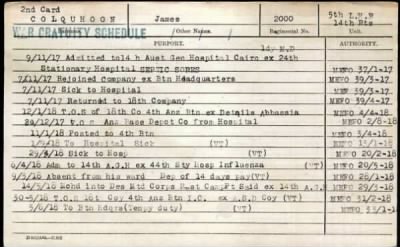 2nd Card
COLQUHOUN James 2000 5th L.H.R
14th Btn
WAR GRATUITY SCHEDULE
(Surname) Other Names. Regimental No.
PURPORT. AUTHORITY.
ldy M.D
9/11/17 Admitted to14 h Aust Gen Hospital Cairo ex 24th
Stationary Hospital SEPTIC SORES MEFO 37/1-17
7/11/17 Rejoined Company ex Btn Headquarters MEFO 39/3-17
7/11/17 Sick to Hospital MEFO 39/3-17
7/11/17 Returned to 18th Company MEFO
12/1/18 T.O.S of 18th Co 4th Anz Btn ex Details Abbassia MEFO 4/4-18
20/12/17 T.O.S Anz Base Depot Co from Hospital MEFO 2/8-18
11/1/18 Posted to 4th Btn MEFO 3/4-18
To Hospital Sick (VT) MEFO 13/1-18
Sick to Hosp (VT) MEFO 20/2-18
6/4/18 Adm to 14th A.G.H ex 44th Sty Hosp Influenza (VT) MEFO 20/5-18
9/5/18 Absent from his ward Dep of 14 days pay(VT) MEFO 28/1-18
14/5/18 Mchd into Des Mtd Corps Rest Camp Pt Said ex 14th A.G.H MEFO 29/3-18
30-5/18 T.O.S 18t Coy 4th Anz Btn I.C. ex Coy (VT) MEFO 31/2-18
3/6/18 To Btn Hdqrs(Tempy duty) (VT) MEFO 33/1-18